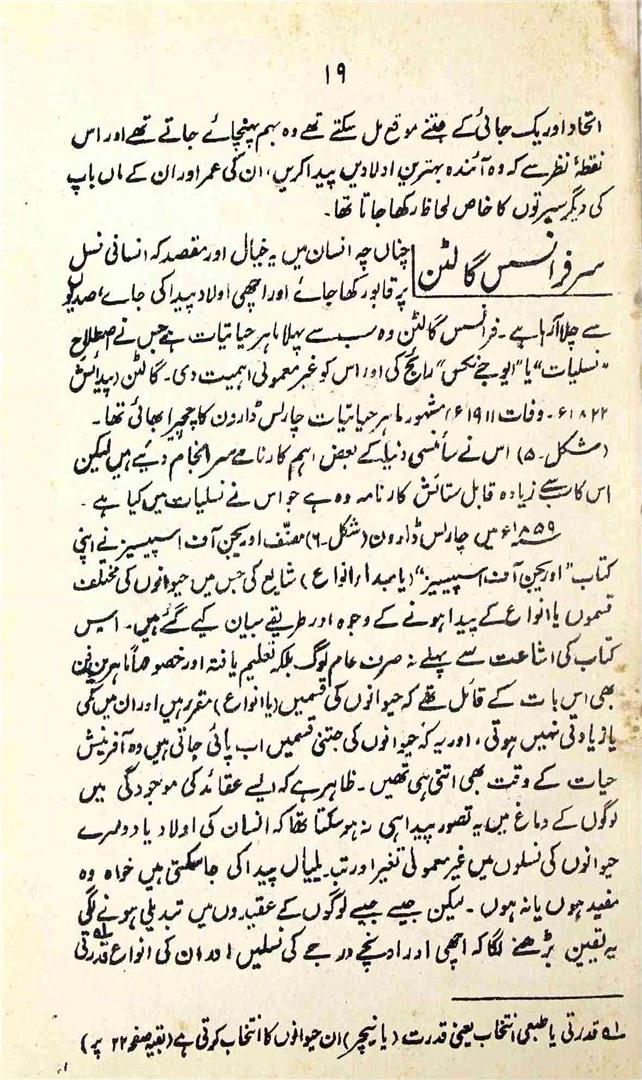 ۱۹
اتحاد اور یک جائی کے جتنے موقع مل سکتے تھے وہ بہم پہنچائے جاتے تھے اور اس
نقطۂ نظر سے کہ وہ آئندہ بہترین اولادیں پیدا کریں، ان کی عمر اور ان کے ماں باپ
کی دیگر سیرتوں کا خاص لحاظ رکھا جاتا تھا۔
سر فرانسس گالٹن
چناں چہ انسان میں یہ خیال اور مقصد کہ انسانی نسل
پر قابو رکھا جائے اور اچھی اولاد پیدا کی جاے، صدیوں
سے چلا آرہا ہے۔ فرانسس گالٹن وہ سب سے پہلا ماہر حیاتیات ہے جس نے اصطلاح
"نسلیات" یا "ایوجے نکس" رائج کی اور اس کو غیر معمولی اہمیت دی۔ گالٹن (پیدائش
۱۸۲۲ء۔ وفات ۱۹۱۱ء) مشہور ماہر حیاتیات چارلس ڈارون کا چچیرا بھائی تھا۔
(شکل۔۵) اس نے سائنسی دنیا کے بعض اہم کارنامے سرانجام دیے ہیں لیکن
اس کا سب سے زیادہ قابل ستائش کارنامہ وہ ہے جو اس نے نسلیات میں کیا ہے۔
۱۸۵۹ء میں چارلس ڈارون (شکل۔۶) مصنّف اوریجن آف اسپیسیز نے اپنی
کتاب "اوریجن آف اسپیسیز" (یا مبداء انواع) شایع کی جس میں حیوانوں کی مختلف
قسموں یا انواع کے پیدا ہونے کے وجوہ اور طریقے بیان کیے گئے ہیں۔ اس
کتاب کی اشاعت سے پہلے نہ صرف عام لوگ بلکہ تعلیم یافتہ اور خصوصاً ماہرین فن
بھی اس بات کے قائل تھے کہ حیوانوں کی قسمیں (یا انواع) مقرر ہیں اور ان میں کمی
یا زیادتی نہیں ہوتی، اور یہ کہ حیوانوں کی جتنی قسمیں اب پائی جاتی ہیں وہ آفرینش
حیات کے وقت بھی اتنی ہی تھیں۔ ظاہر ہے کہ ایسے عقائد کی موجودگی میں
لوگوں کے دماغ میں یہ تصور پیدا ہی نہ ہو سکتا تھا کہ انسان کی اولاد یا دوسرے
حیوانوں کی نسلوں میں غیر معمولی تغیر اور تبدیلیاں پیدا کی جاسکتی ہیں خواہ وہ
مفید ہوں یا نہ ہوں۔ لیکن جیسے جیسے لوگوں کے عقیدوں میں تبدیلی ہونے لگی
یہ یقین بڑھنے لگا کہ اچھی اور اونچے درجے کی نسلیں اور ان کی انواع قدرتی ؎۱
؎۱ قدرتی یا طبعی انتخاب یعنی قدرت (یا نیچر) ان حیوانوں کا انتخاب کرتی ہے (بقیہ صفحہ ۲۲ پر)